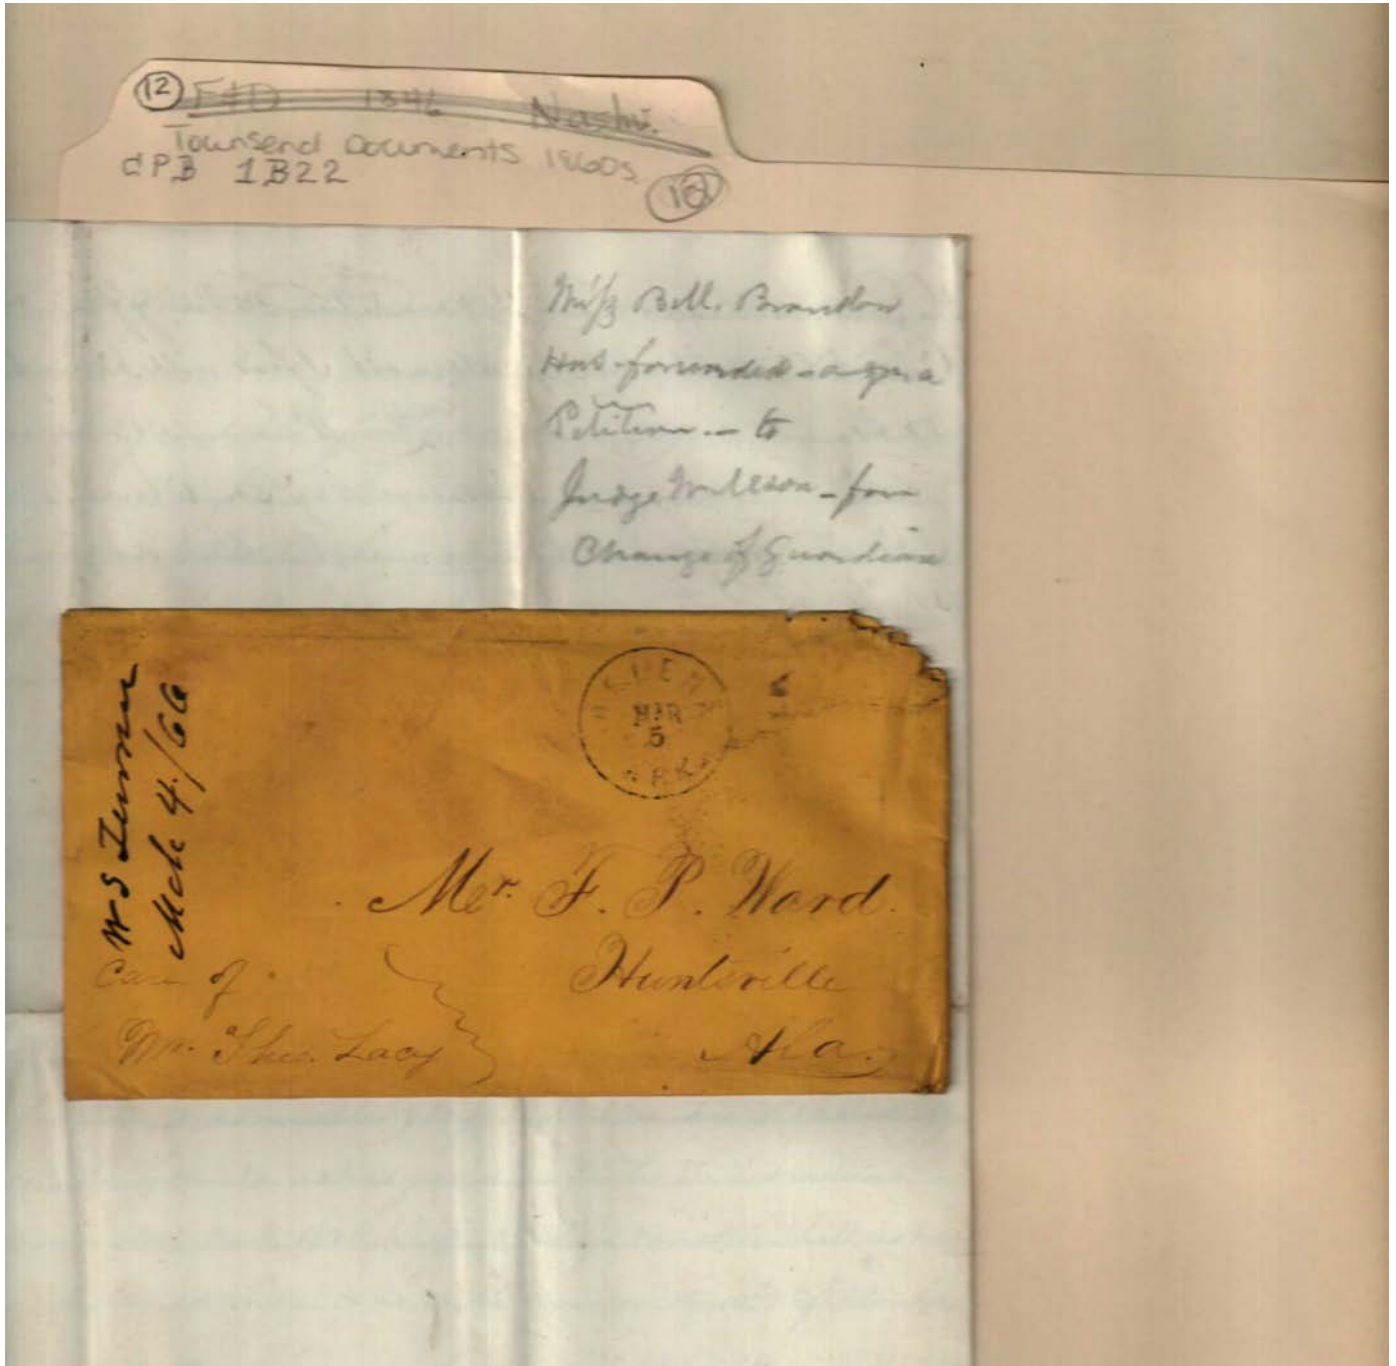 12 F&D 1846 Nashv.
Townsend Documents 1860s
CPB 1B22
Miss Bell. Brandon
Has forwarded a
Petition — to
Judge — for
Change of Guardian
HELENA
MAR
5
ARK
W S
Mch 4/66
Mr. F. P. Ward.
Huntsville
Ala.
Care of
Mr. Theo. Lacy